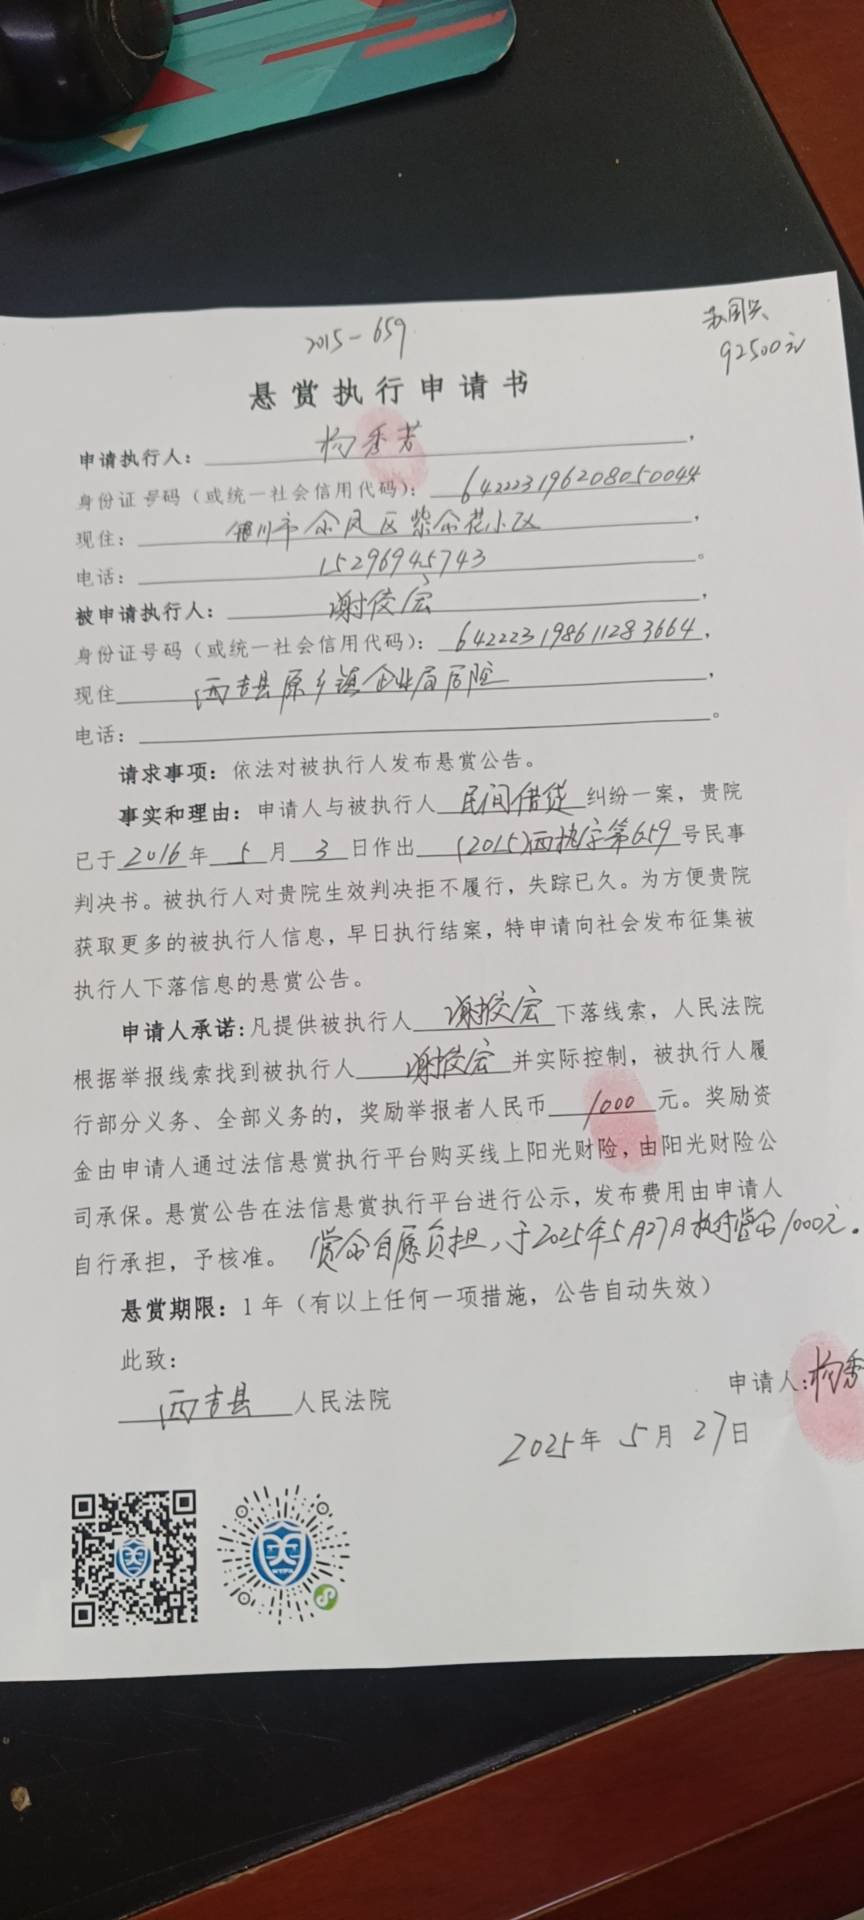 2015-659
苏国兴
92500元
悬赏执行申请书
申请执行人：杨秀芳，
身份证号码（或统一社会信用代码）：642223196208050044
现住：银川市金凤区紫金花小区，
电话：15296945743。
被申请执行人：谢俊宏，
身份证号码（或统一社会信用代码）：642223198611283664，
现住 西吉县原乡镇企业局居隘，
电话：。
请求事项：依法对被执行人发布悬赏公告。
事实和理由：申请人与被执行人民间借贷纠纷一案，贵院
已于2016年5月3日作出(2015)西执字第659号民事
判决书。被执行人对贵院生效判决拒不履行，失踪已久。为方便贵院
获取更多的被执行人信息，早日执行结案，特申请向社会发布征集被
执行人下落信息的悬赏公告。
申请人承诺:凡提供被执行人谢俊宏下落线索，人民法院
根据举报线索找到被执行人谢俊宏并实际控制，被执行人履
行部分义务、全部义务的，奖励举报者人民币1000元。奖励资
金由申请人通过法信悬赏执行平台购买线上阳光财险，由阳光财险公
司承保。悬赏公告在法信悬赏执行平台进行公示，发布费用由申请人
自行承担，予核准。赏金自愿负担，于2025年5月27日执付赏金1000元。
悬赏期限：1年（有以上任何一项措施，公告自动失效）
此致：
西吉县人民法院
申请人:杨秀
2025年5月27日